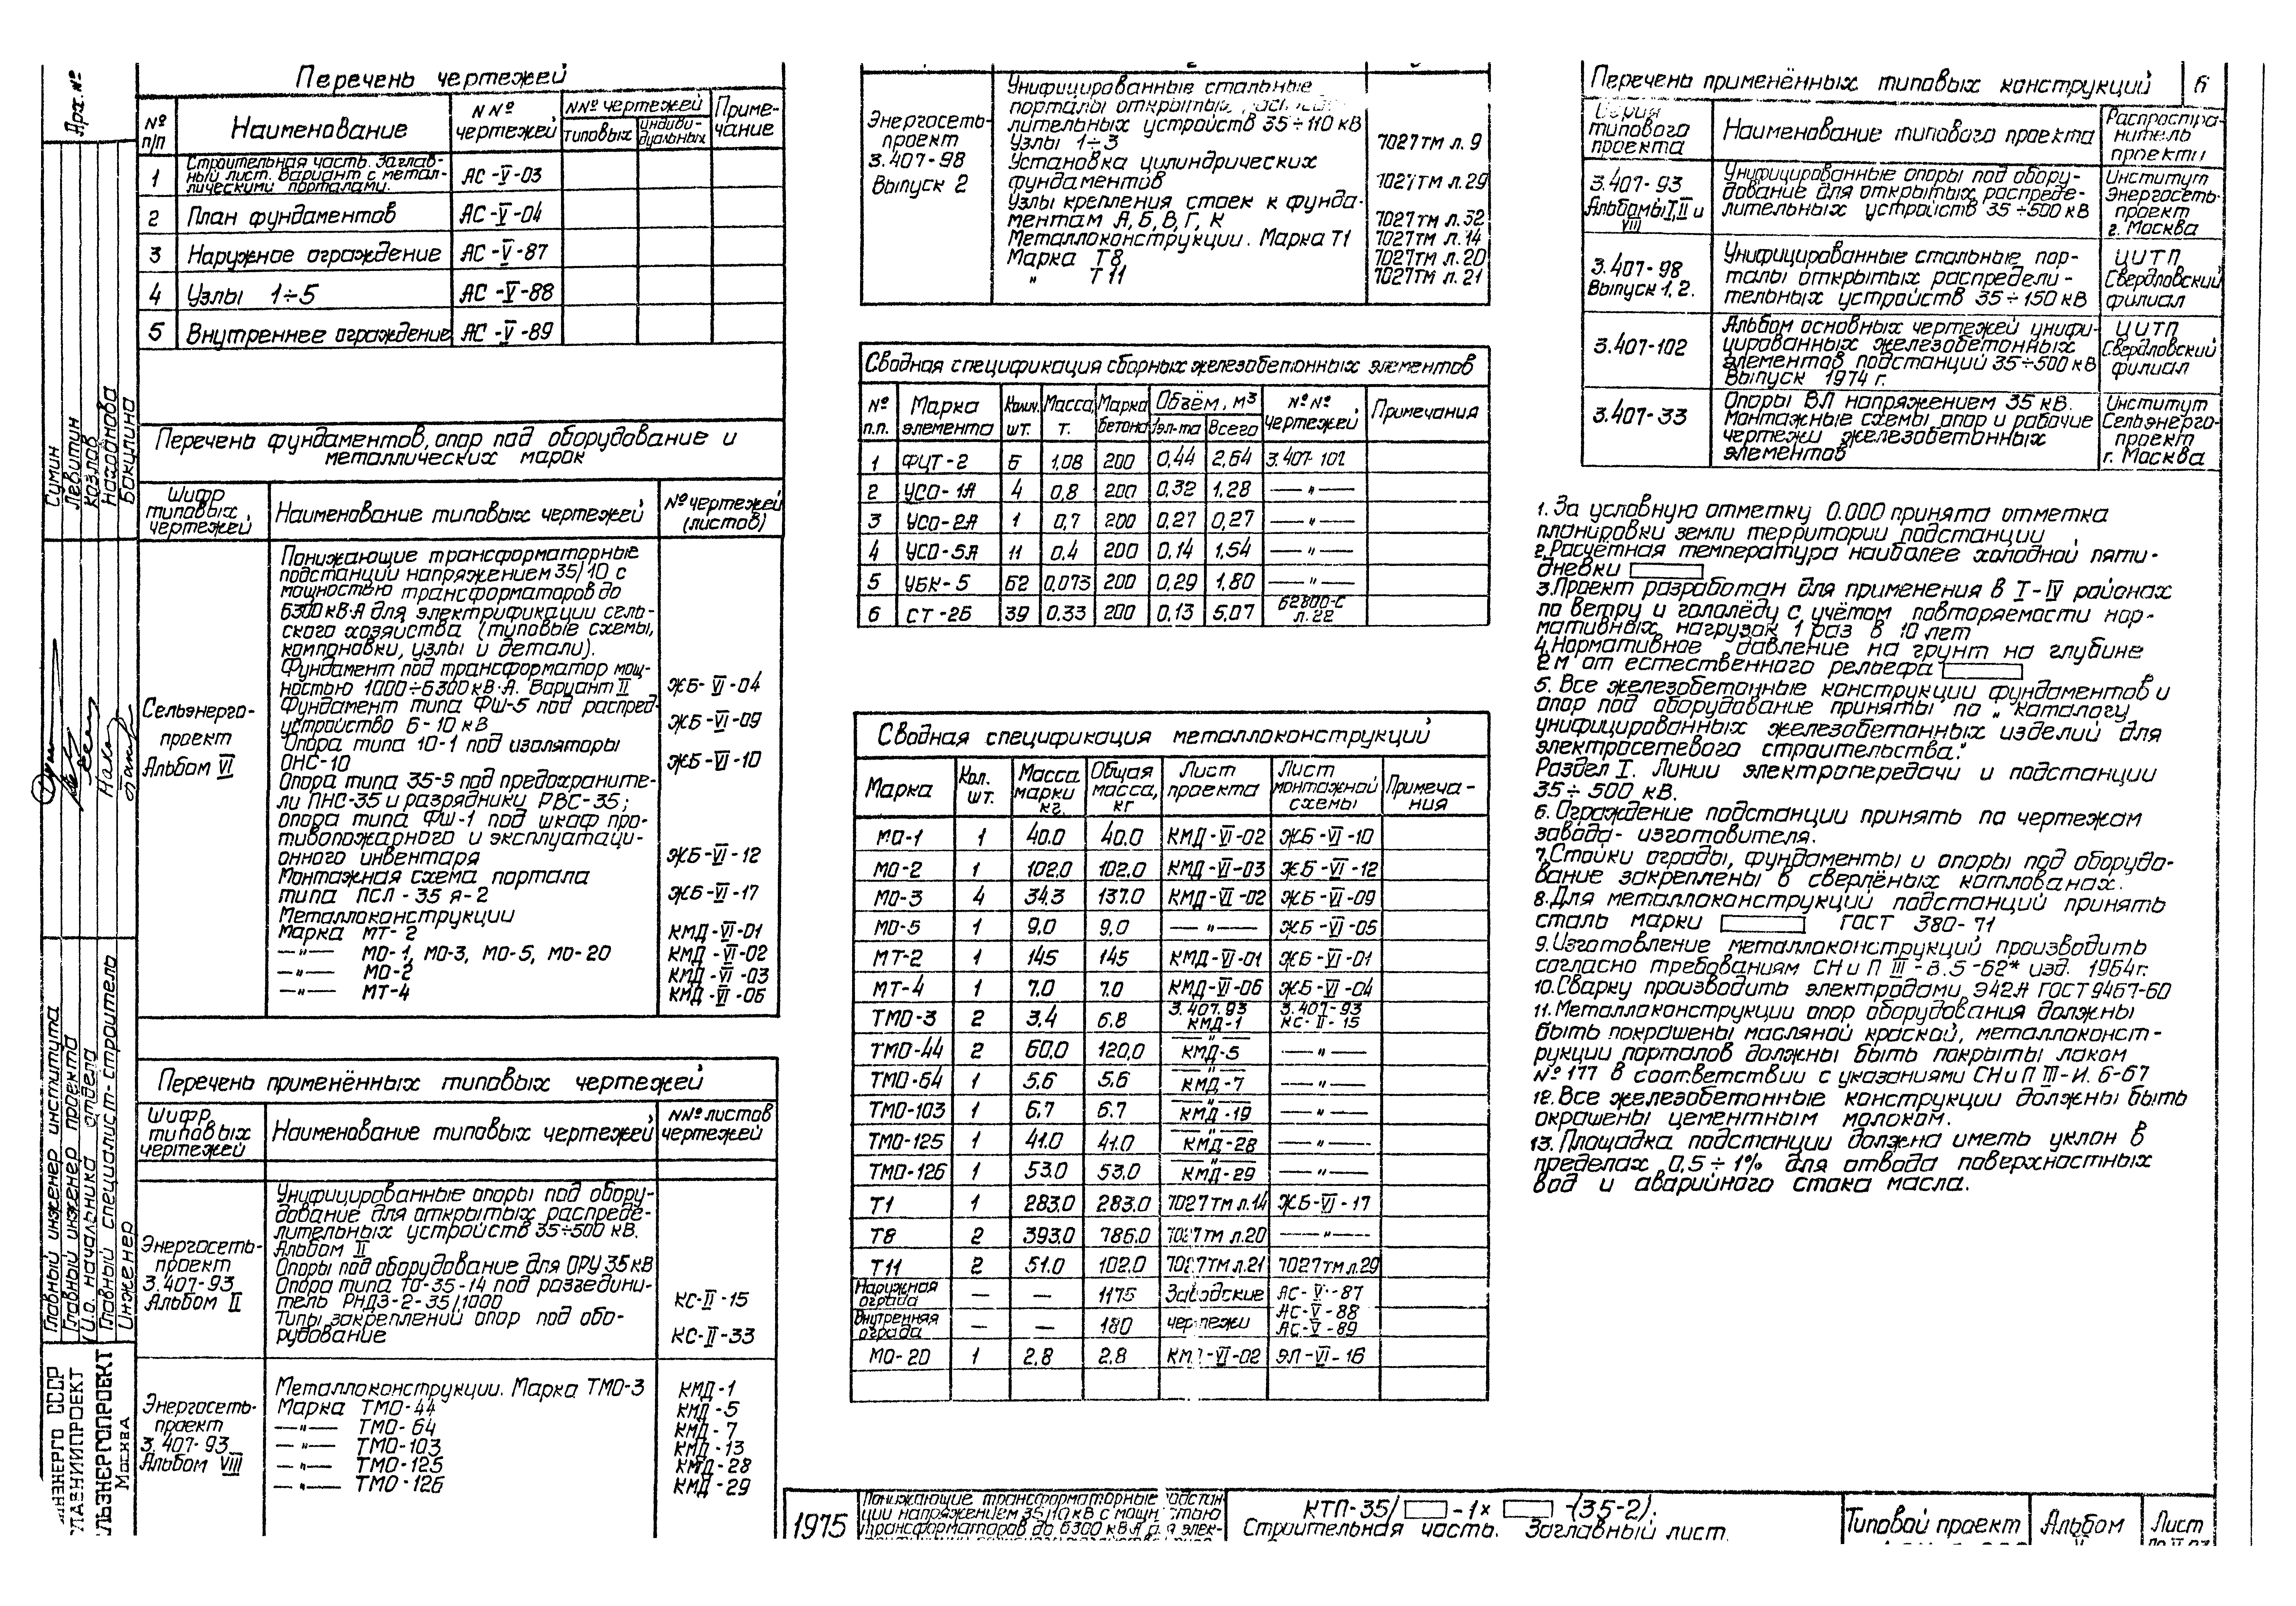 Арх. №
Сумин
Левитин
Козлов
Бакулина
Главный инженер института
Главный инженер проекта
И.о. начальника отдела
Главный специалист-строитель
Инженер
Москва
Перечень чертежей
№ п/п Наименование N№ чертежей N№ чертежей Приме-чание
типовых индиви-дуальных
1 Строительная часть. Заглав-ный лист. Вариант с метал-лическими порталами. АС-V-03
2 План фундаментов АС-V-04
3 Наружное ограждение АС-V-87
4 Узлы 1÷5 АС-V-88
5 Внутреннее ограждение АС-V-89
Перечень фундаментов, опор под оборудование и
металлических марок
Шифр типовых чертежей Наименование типовых чертежей № чертежей (листов)
Сельэнерго-
проект
Альбом VI
Понижающие трансформаторные
подстанции напряжением 35/10 с
мощностью трансформаторов до
6300 кВ·А для электрификации сель-
ского хозяйства (типовые схемы,
компоновки, узлы и детали).
Фундамент под трансформатор мощ-
ностью 1000÷6300 кВ·А. Вариант II ЖБ-VI-04
Фундамент типа ФШ-5 под распред-
устройство 6-10 кВ ЖБ-VI-09
Опора типа 10-1 под изоляторы
ОНС-10 ЖБ-VI-10
Опора типа 35-3 под предохраните-
ли ПНС-35 и разрядники РВС-35;
опора типа ФШ-1 под шкаф про-
тивопожарного и эксплуатаци-
онного инвентаря ЖБ-VI-12
Монтажная схема портала
типа ПСЛ-35 Я-2 ЖБ-VI-17
Металлоконструкции
Марка МТ-2 КМД-VI-01
—"— МО-1, МО-3, МО-5, МО-20 КМД-VI-02
—"— МО-2 КМД-VI-03
—"— МТ-4 КМД-VI-06
Перечень применённых типовых чертежей
Шифр типовых чертежей Наименование типовых чертежей N№ листов чертежей
Энергосеть-
проект
3.407-93
Альбом II
Унифицированные опоры под обору-
дование для открытых распреде-
лительных устройств 35÷500 кВ.
Альбом II
Опоры под оборудование для ОРУ 35 кВ
Опора типа ТО-35-14 под разъедини-
тель РНДЗ-2-35/1000 КС-II-15
Типы закреплений опор под обо-
рудование КС-II-33
Энергосеть-
проект
3.407-93
Альбом VIII
Металлоконструкции. Марка ТМО-3 КМД-1
Марка ТМО-44 КМД-5
—"— ТМО-64 КМД-7
—"— ТМО-103 КМД-13
—"— ТМО-125 КМД-28
—"— ТМО-126 КМД-29
Энергосеть-
проект
3.407-98
Выпуск 2
Унифицированные стальные
порталы открытых
лительных устройств 35÷110 кВ
Узлы 1÷3 7027тм л.9
Установка цилиндрических
фундаментов 7027тм л.29
Узлы крепления стоек к фунда-
ментам А, Б, В, Г, К 7027тм л.32
Металлоконструкции. Марка Т1 7027тм л.14
Марка Т8 7027тм л.20
" Т11 7027тм л.21
Сводная спецификация сборных железобетонных элементов
№ п.п. Марка элемента Колич. шт. Масса, т. Марка бетона Объём, м³ №№ чертежей Примечания
1эл-та Всего
1 ФЦТ-2 6 1,08 200 0,44 2,64 3.407-102
2 УСО-1А 4 0,8 200 0,32 1,28 —"—
3 УСО-2А 1 0,7 200 0,27 0,27 —"—
4 УСО-5А 11 0,4 200 0,14 1,54 —"—
5 УБК-5 62 0,073 200 0,29 1,80 —"—
6 СТ-2Б 39 0.33 200 0,13 5,07 62800-С л.22
Сводная спецификация металлоконструкций
Марка Кол. шт. Масса марки кг. Общая масса, кг Лист проекта Лист монтажной схемы Примеча-ния
МО-1 1 40.0 40.0 КМД-VI-02 ЖБ-VI-10
МО-2 1 102.0 102.0 КМД-VI-03 ЖБ-VI-12
МО-3 4 34.3 137.0 КМД-VI-02 ЖБ-VI-09
МО-5 1 9.0 9.0 —"— ЖБ-VI-05
МТ-2 1 145 145 КМД-VI-01 ЖБ-VI-01
МТ-4 1 7.0 7.0 КМД-VI-06 ЖБ-VI-04
ТМО-3 2 3,4 6.8 3.407.93 КМД-1 3.407-93 КС-II-15
ТМО-44 2 60,0 120,0 —"— КМД-5 —"—
ТМО-64 1 5.6 5.6 —"— КМД-7 —"—
ТМО-103 1 6.7 6.7 —"— КМД-19 —"—
ТМО-125 1 41.0 41.0 —"— КМД-28 —"—
ТМО-126 1 53.0 53.0 —"— КМД-29 —"—
Т1 1 283.0 283.0 7027тм л.14 ЖБ-VI-17
Т8 2 393.0 786.0 7027тм л.20 —"—
Т11 2 51.0 102.0 7027тм л.21 7027тм л.29
Наружная ограда — — 1175 Заводские АС-V-87
АС-V-88
Внутренняя ограда — — 180 чертежи АС-V-89
МО-20 1 2.8 2.8 КМД-VI-02 ЭЛ-VI-16
Перечень применённых типовых конструкций 6
Серия типового проекта Наименование типового проекта Распростра-нитель проекта
3.407-93
Альбомы I, II и
VIII
Унифицированные опоры под обору-
дование для открытых распреде-
лительных устройств 35÷500 кВ
Институт
Энергосеть-
проект
г. Москва
3.407-98
Выпуск 1, 2.
Унифицированные стальные пор-
талы открытых распредели-
тельных устройств 35÷150 кВ
ЦИТП
Свердловский
филиал
3.407-102
Альбом основных чертежей унифи-
цированных железобетонных
элементов подстанций 35÷500 кВ
Выпуск 1974 г.
ЦИТП
Свердловский
филиал
3.407-33
Опоры ВЛ напряжением 35 кВ.
Монтажные схемы опор и рабочие
чертежи железобетонных
элементов
Институт
Сельэнерго-
проект
г. Москва
1. За условную отметку 0.000 принята отметка
планировки земли территории подстанции
2. Расчётная температура наиболее холодной пяти-
дневки
3. Проект разработан для применения в I-IV районах
по ветру и гололёду с учётом повторяемости нор-
мативных нагрузок 1 раз в 10 лет
4. Нормативное давление на грунт на глубине
2 м от естественного рельефа
5. Все железобетонные конструкции фундаментов и
опор под оборудование приняты по „каталогу
унифицированных железобетонных изделий для
электросетевого строительства."
Раздел I. Линии электропередачи и подстанции
35÷500 кВ.
6. Ограждение подстанции принять по чертежам
завода-изготовителя.
7. Стойки ограды, фундаменты и опоры под оборудо-
вание закреплены в сверлёных котлованах.
8. Для металлоконструкций подстанций принять
сталь марки ГОСТ 380-71
9. Изготовление металлоконструкций производить
согласно требованиям СНиП III-В.5-62* изд. 1964г.
10. Сварку производить электродами Э42А ГОСТ 9467-60
11. Металлоконструкции опор оборудования должны
быть покрашены масляной краской, металлоконст-
рукции порталов должны быть покрыты лаком
№177 в соответствии с указаниями СНиП III-И.6-67
12. Все железобетонные конструкции должны быть
окрашены цементным молоком.
13. Площадка подстанции должна иметь уклон в
пределах 0,5÷1% для отвода поверхностных
вод и аварийного стока масла.
1975
Понижающие трансформаторные подстан-
ции напряжением 35/10 кВ с мощностью
трансформаторов до 6300 кВ·А для элек-
КТП-35/ -1х -(35-2).
Строительная часть. Заглавный лист.
Типовой проект
Альбом
V
Лист